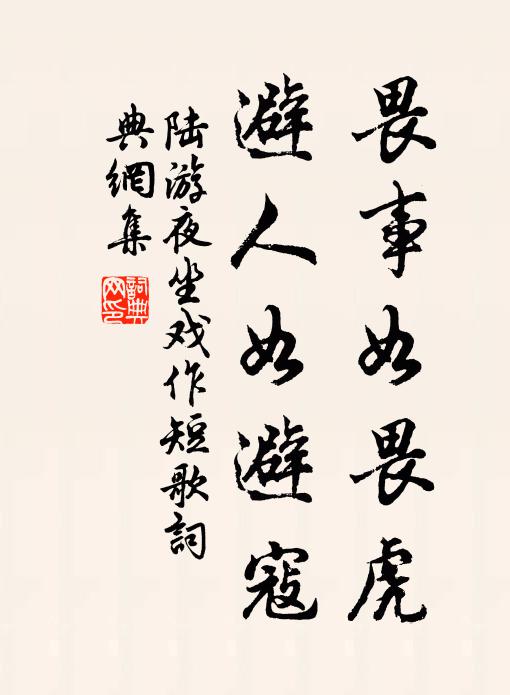 畏事如畏虎
避人如避寇
陆游夜坐戏作短歌詞
典網集
詞典网印